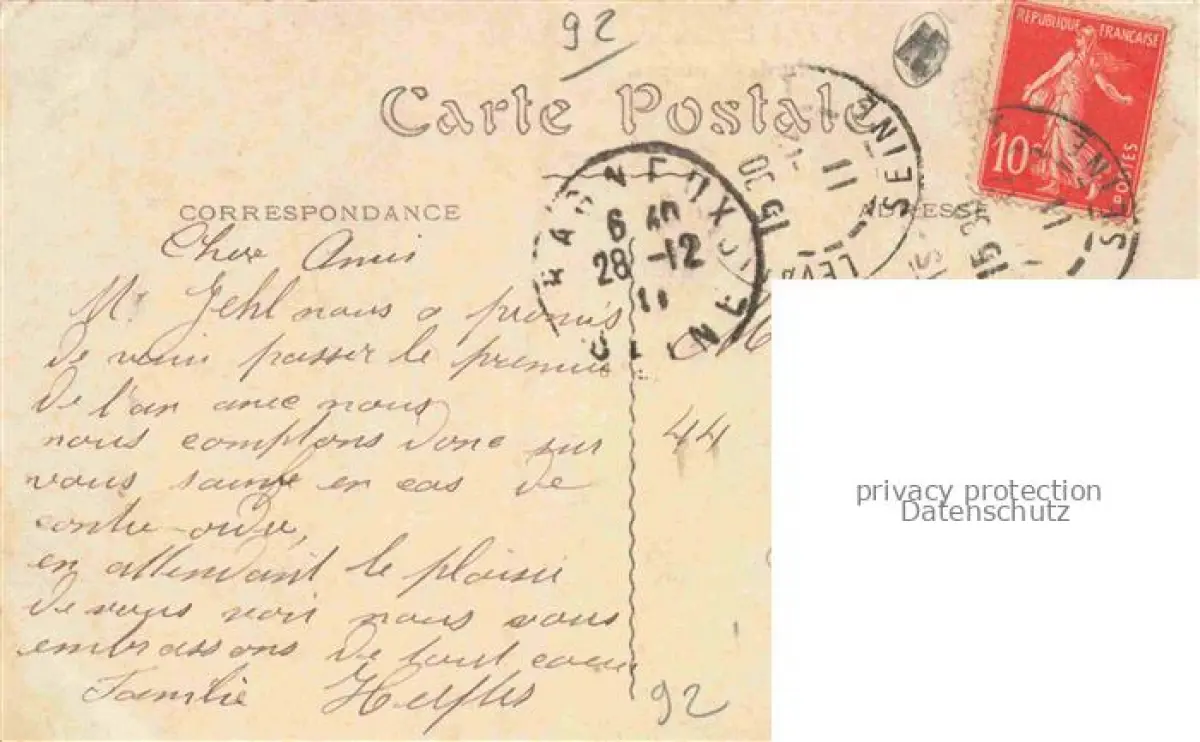 92
RÉPUBLIQUE FRANÇAISE
10
POSTES
Carte Postale
SEINE
11
15 30
LEVA
SEINE
11
15 3
6 40
28 -12
11
SEINE
CORRESPONDANCE
ADRESSE
Cher Amis
Mr Jehl nous a promis
de venir passer le premier
de l'an avec nous
nous comptons donc sur
vous sauf en cas de
contre-ordre,
en attendant le plaisir
de vous voir nous vous
embrassons de tout coeur
Familie
M
44
92
privacy protection
Datenschutz